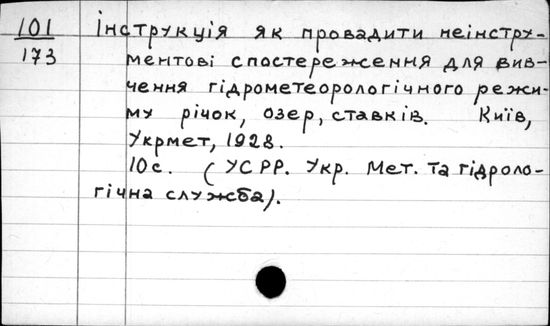 101
173
Інструкція як провадити неінстру-
ментові спостереження для вив-
чення гідрометеорологічного режи-
му річок, озер, ставків. Київ,
Укрмет, 1928.
10с. (УСРР. Укр. Мет. та гідроло-
гічна служба).